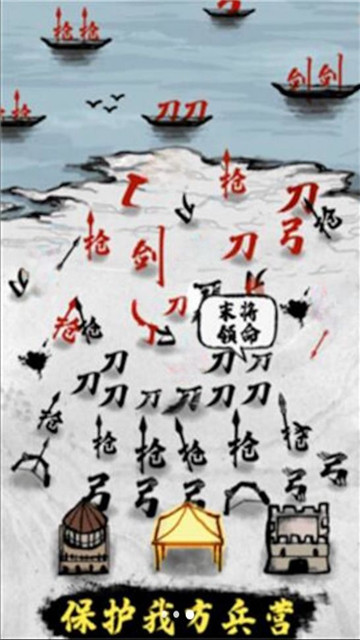 枪枪
剑剑
枪
刀刀
枪
刀
枪
枪
剑
刀
弓
刀
枪
枪
末将
领命
刀 刀 刀
刀 刀 刀 刀 刀 刀
枪
枪 枪 枪 枪 枪
弓 弓 弓 弓 弓
保护我方兵营